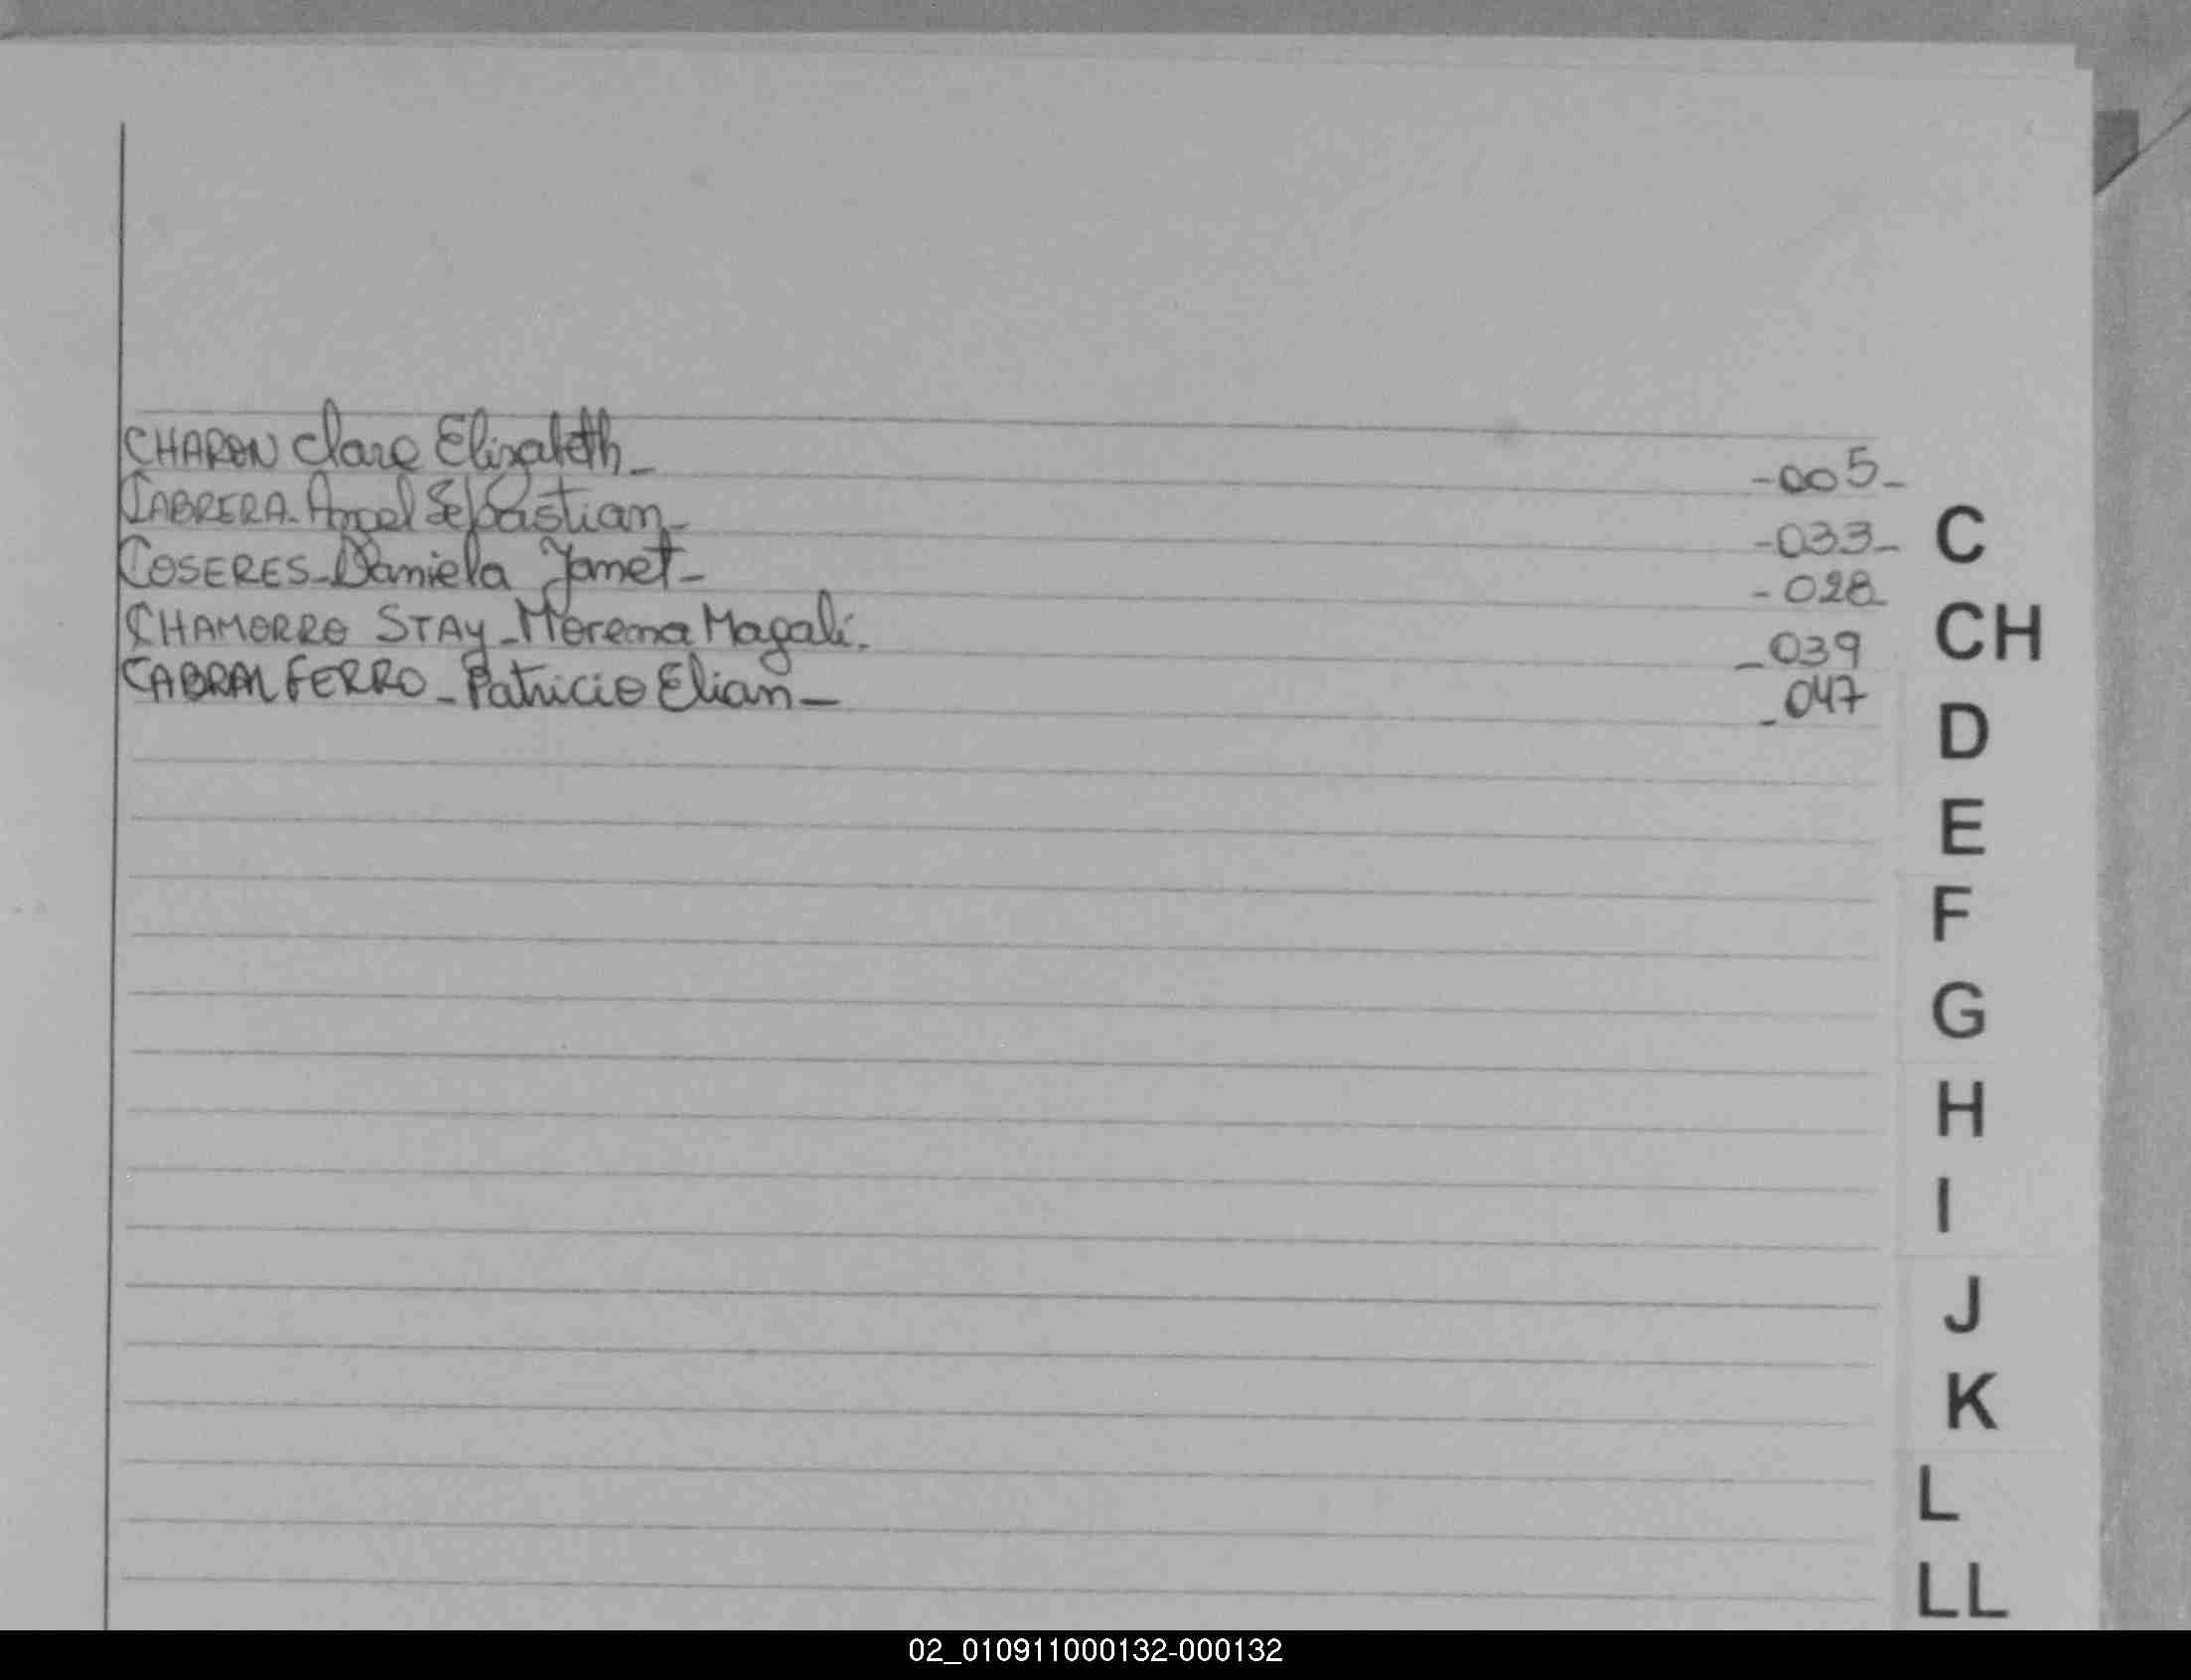 CHARON Clare Elizabeth_ -005-
CABRERA-Angel Sebastian_ -033-
COSERES-Daniela Janet- -028-
CHAMORRO STAY-Morena Magali. _039
CABRAL FERRO_Patricio Elian_ _047
C
CH
D
E
F
G
H
I
J
K
L
LL
02_010911000132-000132